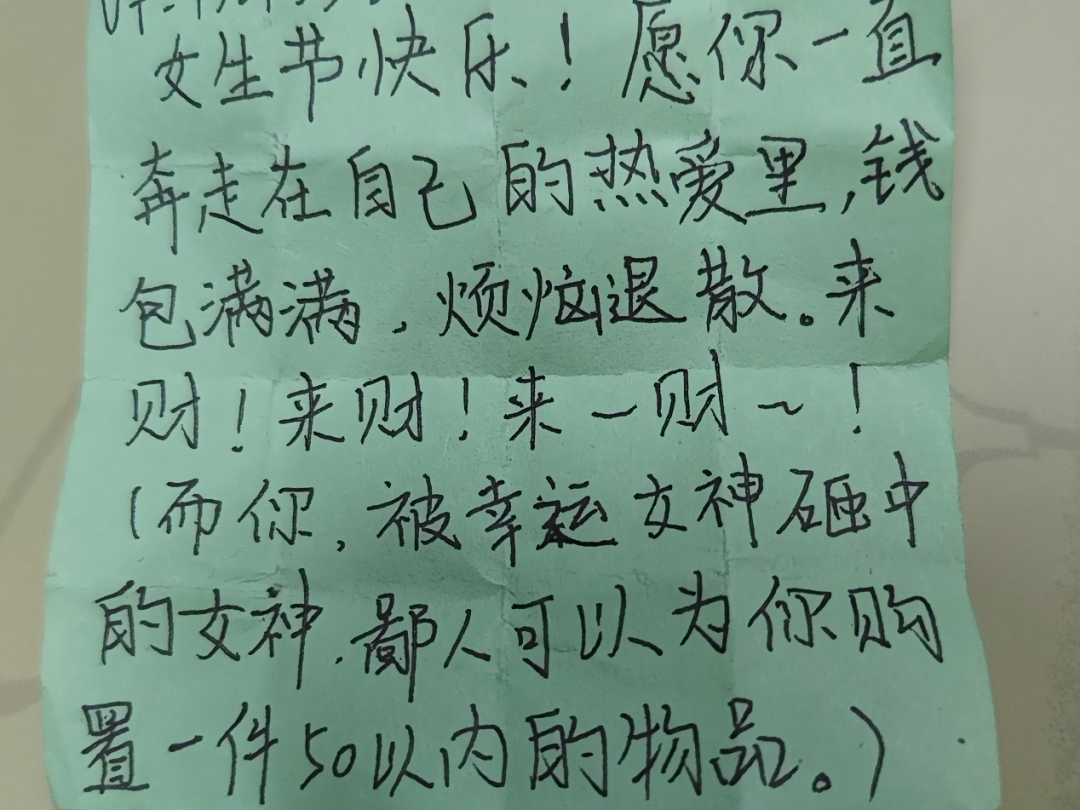 女生节快乐！愿你一直
奔走在自己的热爱里，钱
包满满，烦恼退散。来
财！来财！来一财～！
（而你，被幸运女神砸中
的女神，鄙人可以为你购
置一件50以内的物品。）